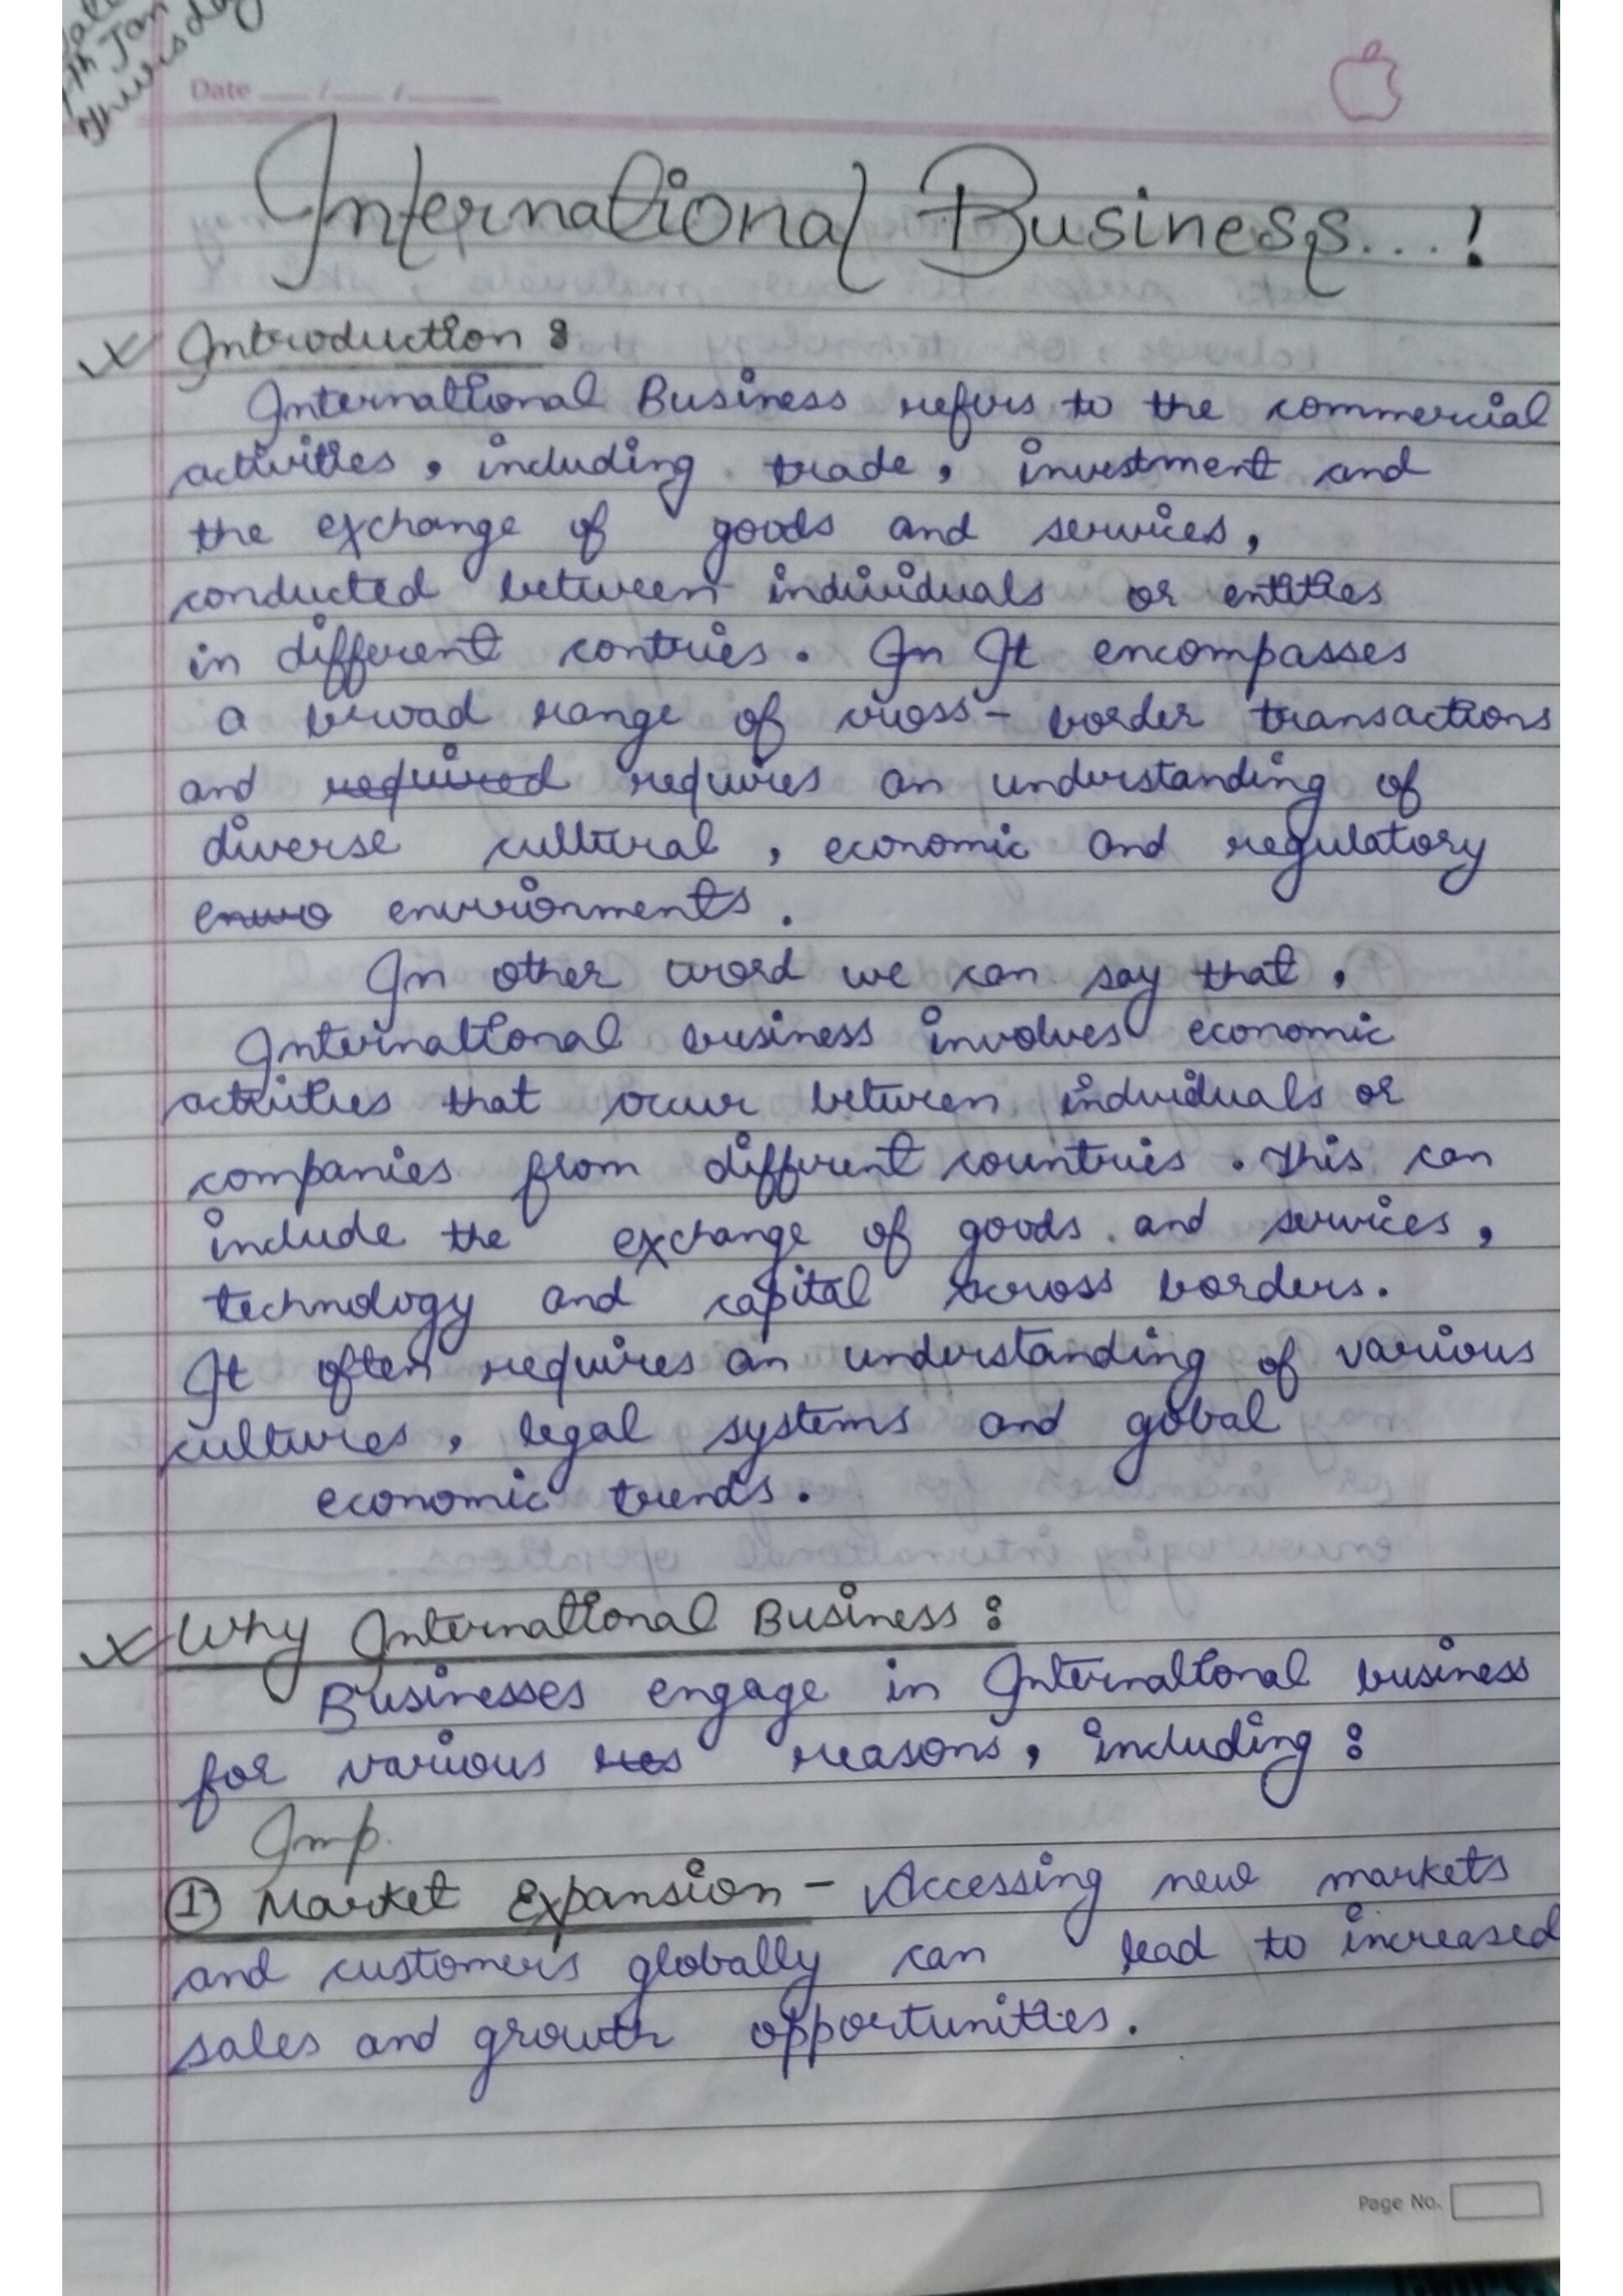 th Jan
Thursday
Date __/__/____
International Business...!
Introduction :
International Business refers to the commercial
activities, including trade, investment and
the exchange of goods and services,
conducted between individuals or entities
in different contries. In It encompasses
a broad range of cross-border transactions
and required requires an understanding of
diverse cultural, economic and regulatory
enviro environments.
In other word we can say that,
International business involves economic
activities that occur between individuals or
companies from different countries. This can
include the exchange of goods and services,
technology and capital across borders.
It often requires an understanding of various
cultures, legal systems and gobal
economic trends.
Why International Business :
Businesses engage in International business
for various res reasons, including :
Imp.
① Market Expansion - Accessing new markets
and customers globally can lead to increased
sales and growth opportunities.
Page No.